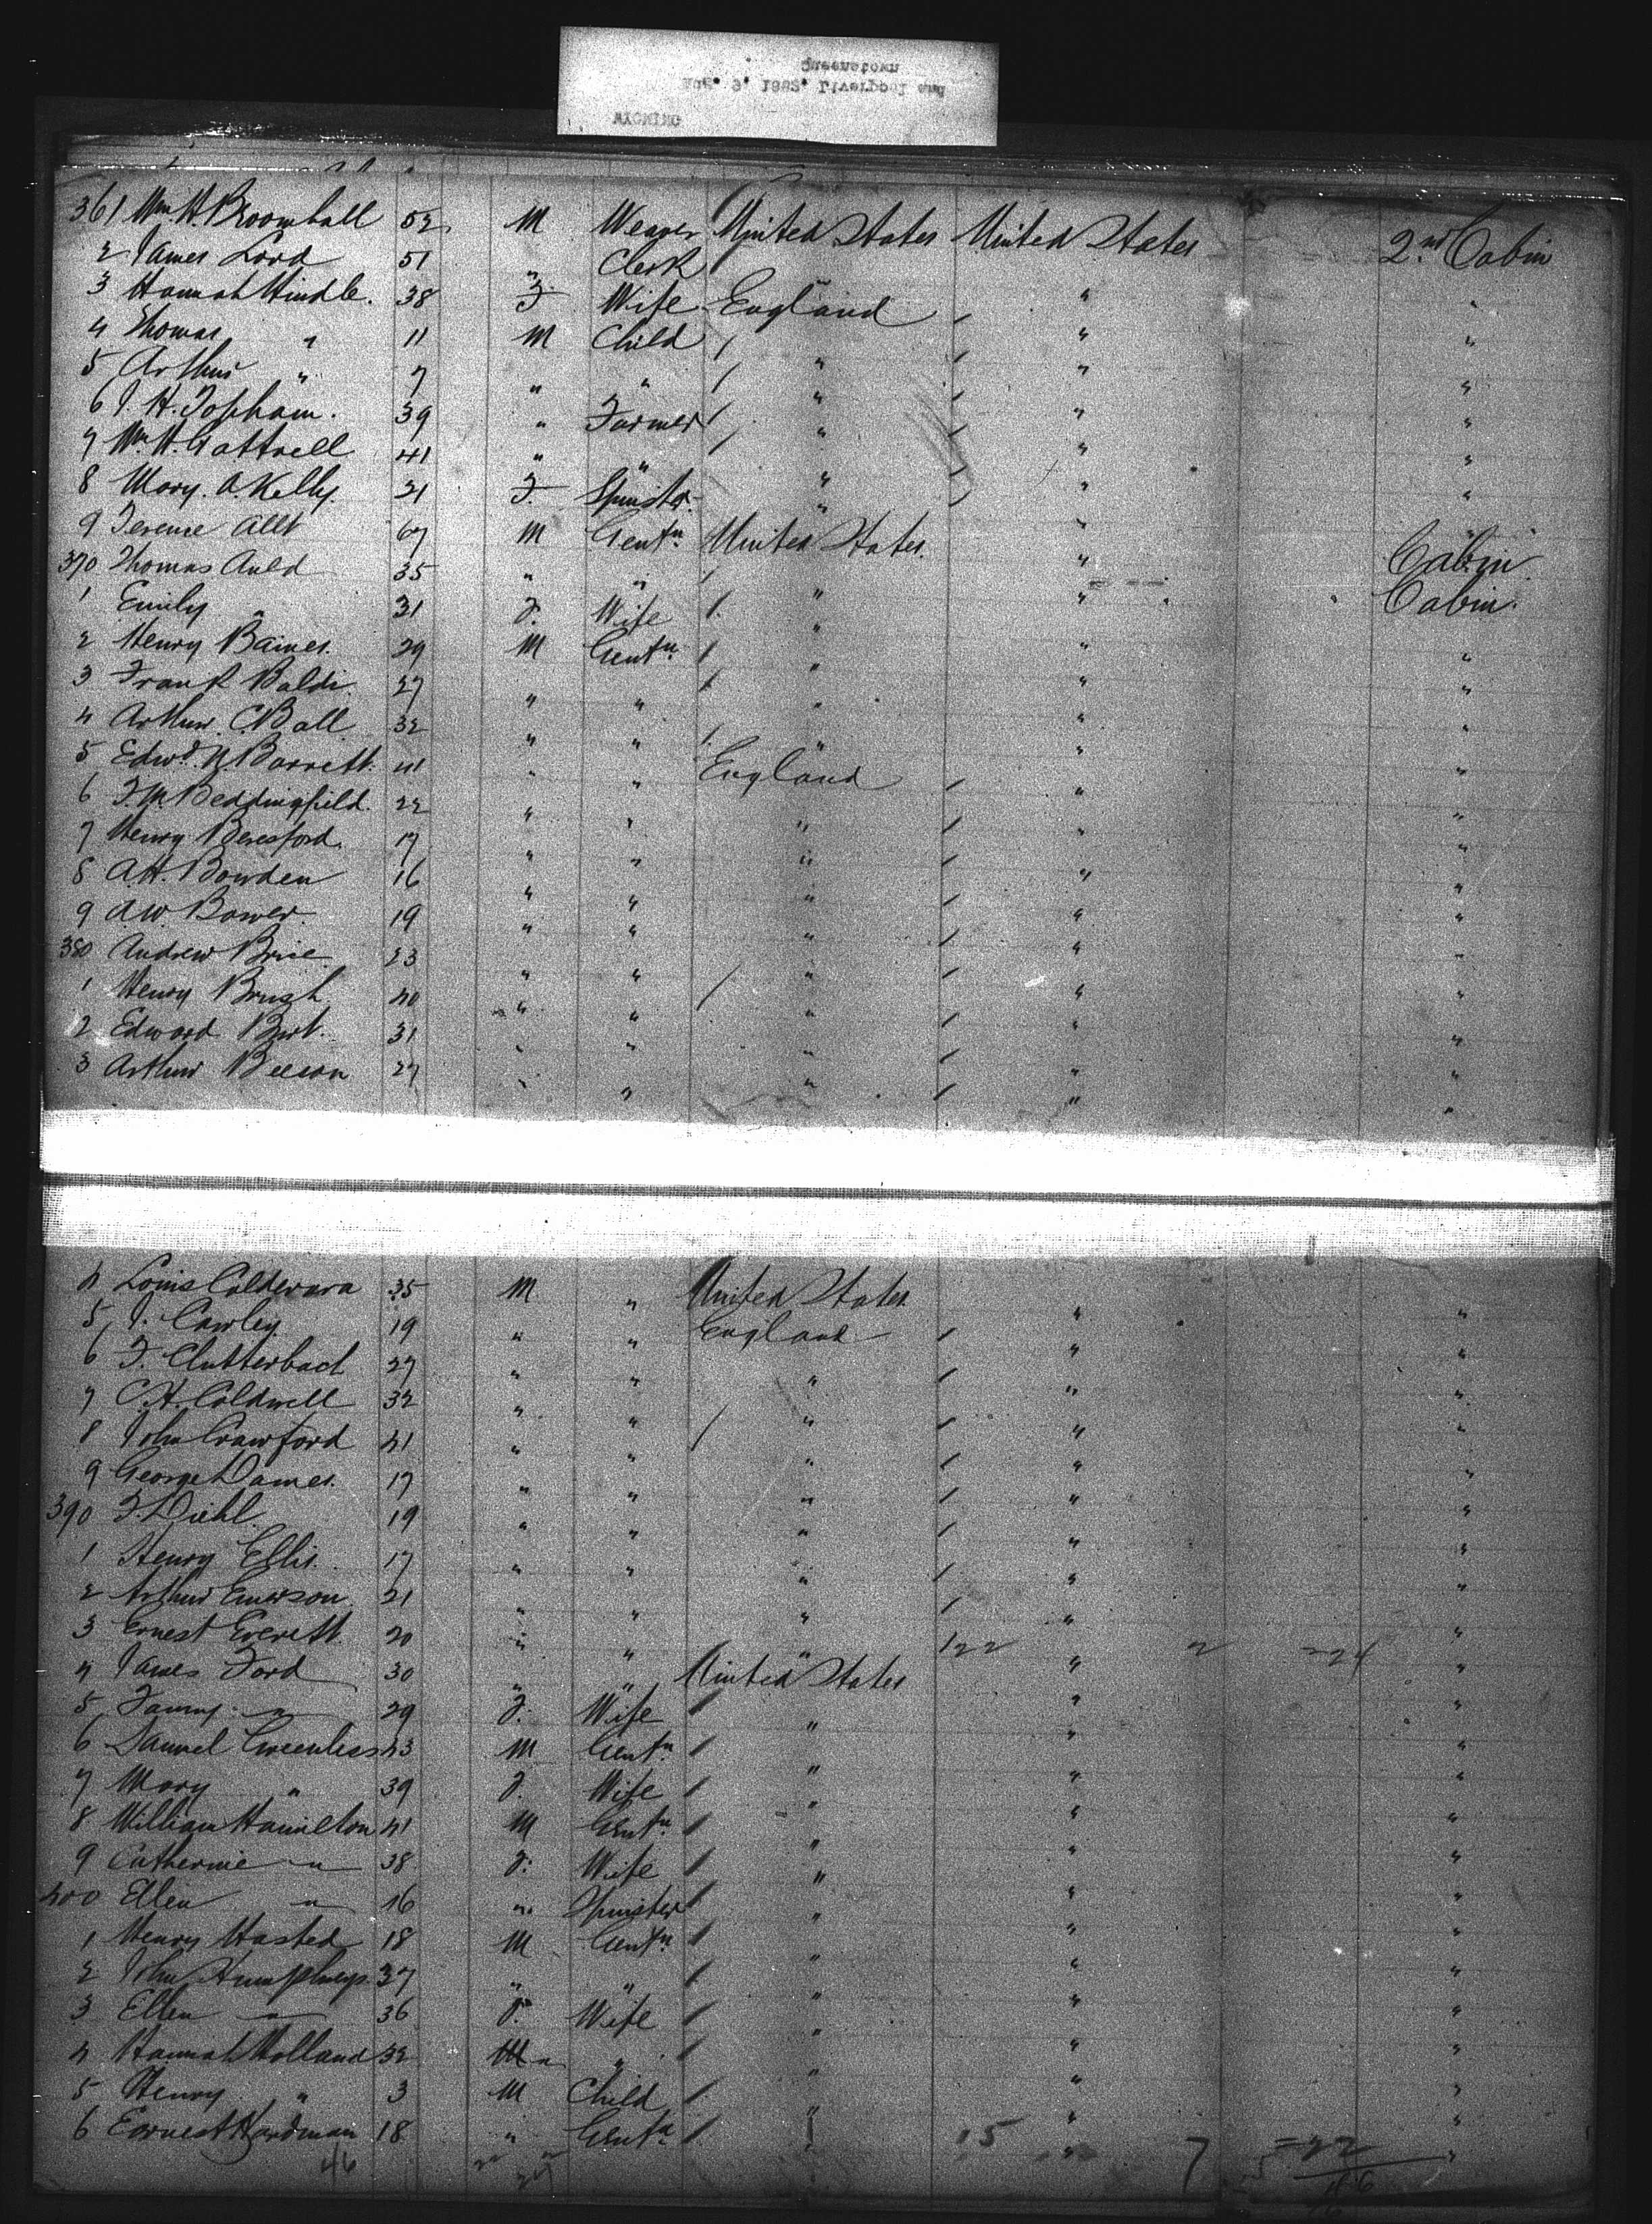 WYOMING
Aug. 3, 1882, Liverpool and
Queenstown
361 Wm H. Broomhall 52 M Weaver United States United States 2nd Cabin
2 James Lord 51 " Clerk " " "
3 Hannah Hindle. 38 F Wife England " "
4 Thomas " 11 M Child " " "
5 Arthur " 7 " " " " "
6 J. H. Topham. 39 " Farmer " " "
7 Wm H. Gattrell 41 " " " " "
8 Mary. A. Kelly. 21 F. Spinster " " "
9 Terence Allt 67 M Gentn. United States. " Cabin
370 Thomas Auld 35 " " " " Cabin.
1 Emily " 31 F. Wife " " "
2 Henry Baines. 29 M Gentn. " " "
3 Frank Baldi. 27 " " " " "
4 Arthur. C. Ball 32 " " " " "
5 Edwd. N. Barrett. 41 " " England " "
6 F. M. Beddingfield. 22 " " " " "
7 Henry Beresford. 17 " " " " "
8 A. H. Bowden 16 " " " " "
9 A. W. Bower. 19 " " " " "
380 Andrew Brice 23 " " " " "
1 Henry Brush 40 " " " " "
2 Edward Burt. 31 " " " " "
3 Arthur Beeson 27 " " " " "
4 Louis Calderara 35 M " United States " "
5 J. Cawley 19 " " England " "
6 F. Clutterback 27 " " " " "
7 C. H. Coldwell 32 " " " " "
8 John Crawford 41 " " " " "
9 George Dames. 17 " " " " "
390 F. Diehl 19 " " " " "
1 Henry Ellis. 17 " " " " "
2 Arthur Emerson 21 " " " " "
3 Ernest Everett. 20 " " " 122 " 2 =24 "
4 James Ford 30 " " United States " "
5 Fanny " 29 F. Wife " " "
6 Samuel Greenless 43 M Gentn. " " "
7 Mary " 39 F. Wife " " "
8 William Hamilton 41 M Gentn. " " "
9 Catherine " 38 F. Wife " " "
400 Ellen " 16 " Spinster " " "
1 Henry Hasted 18 M Gentn. " " "
2 John Humphreys. 37 " " " " "
3 Ellen " 36 F. Wife " " "
4 Hannah Holland 32 " " " " "
5 Henry " 3 M Child " " "
6 Earnest Hardman 18 " Gentn. " 15 " 7 =22 "
46